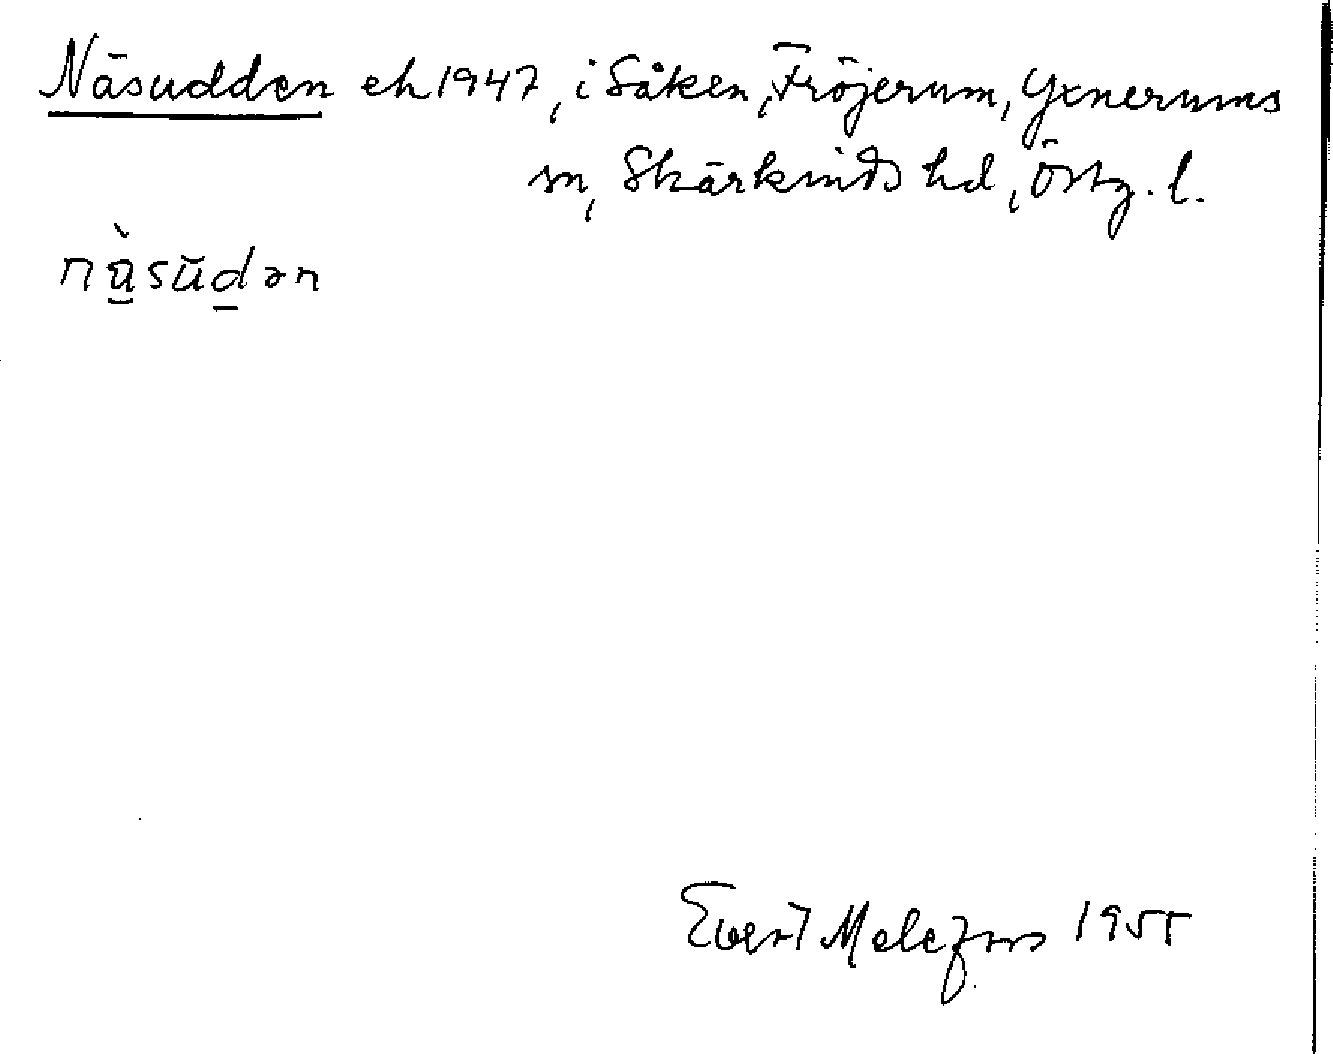 Näsudden ek 1947, i Såken, Fröjerum, Yxnerums
sn, Skärkinds hd, Östg. l.
nä̀sŭdən
Evert Melefors 1955